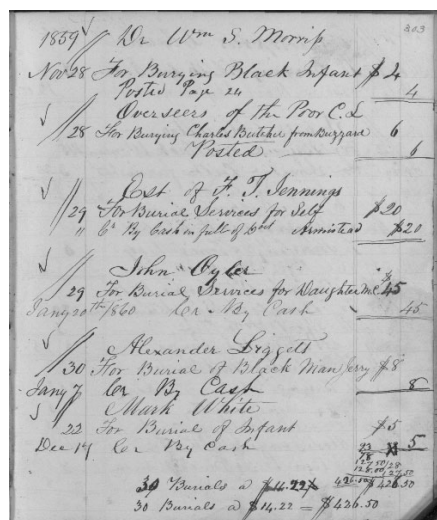 203
1859 Dr Wm S. Morriss
Nov 28 For Burying Black Infant $4
Posted Page 24 4
Overseers of the Poor C. L
28 For Burying Charles Butcher from Buzzard 6
Posted 6
Est of F. T. Jennings
29 For Burial Services for Self $20
" Cr By Cash in full of Armistead $20
John Oyler
29 For Burial Services for Daughter $45
Jany 20th 1860 Cr By Cash 45
Alexander Liggett
30 For Burial of Black Man Jerry $8
Jany 7 Cr By Cash 8
Mark White
22 For Burial of Infant $5
Dec 14 Cr By Cash 5
426.50 $426.50
30 Burials a $14.22
30 Burials a $14.22 = $426.50